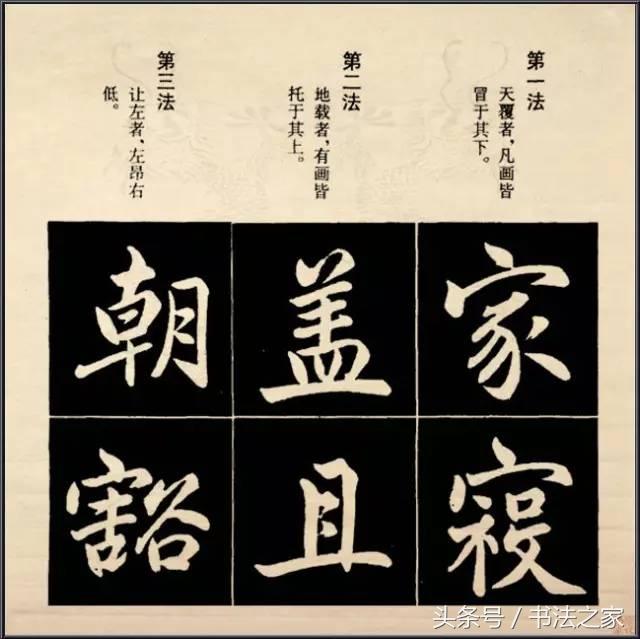 第一法
天覆者，凡画皆
冒于其下。
第二法
地载者，有画皆
托于其上。
第三法
让左者，左昂右
低。
家
盖
且
朝
豁
头条号 / 书法之家